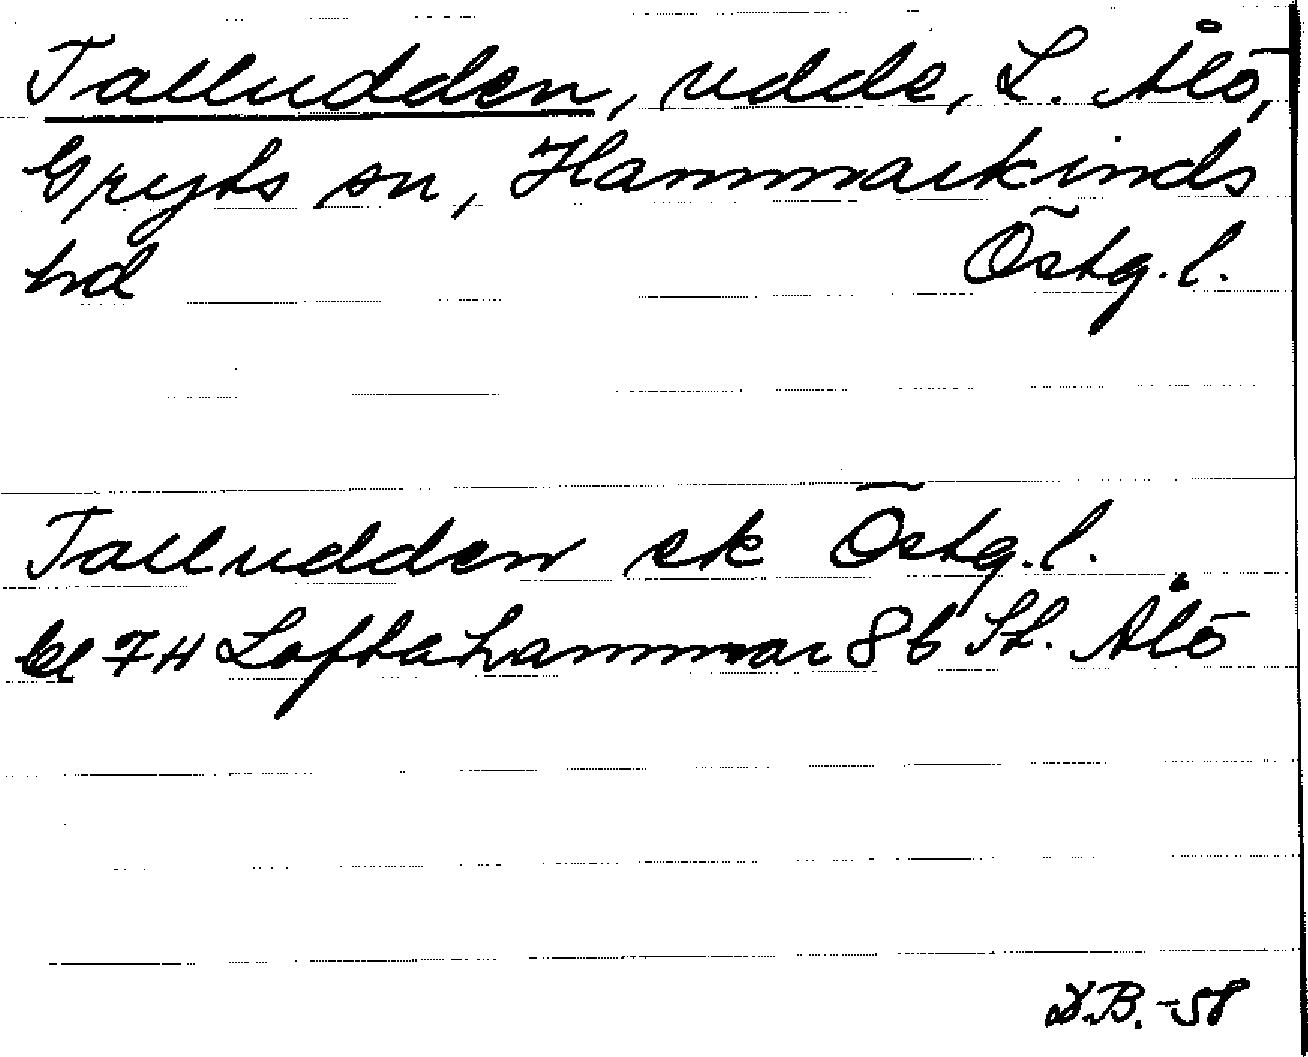 Talludden, udde, L. Ålö,
Gryts sn, Hammarkinds
hd Östg. l.
Talludden ek Östg. l.
bl 7H Loftahammar 8b St. Ålö
D.B. -58